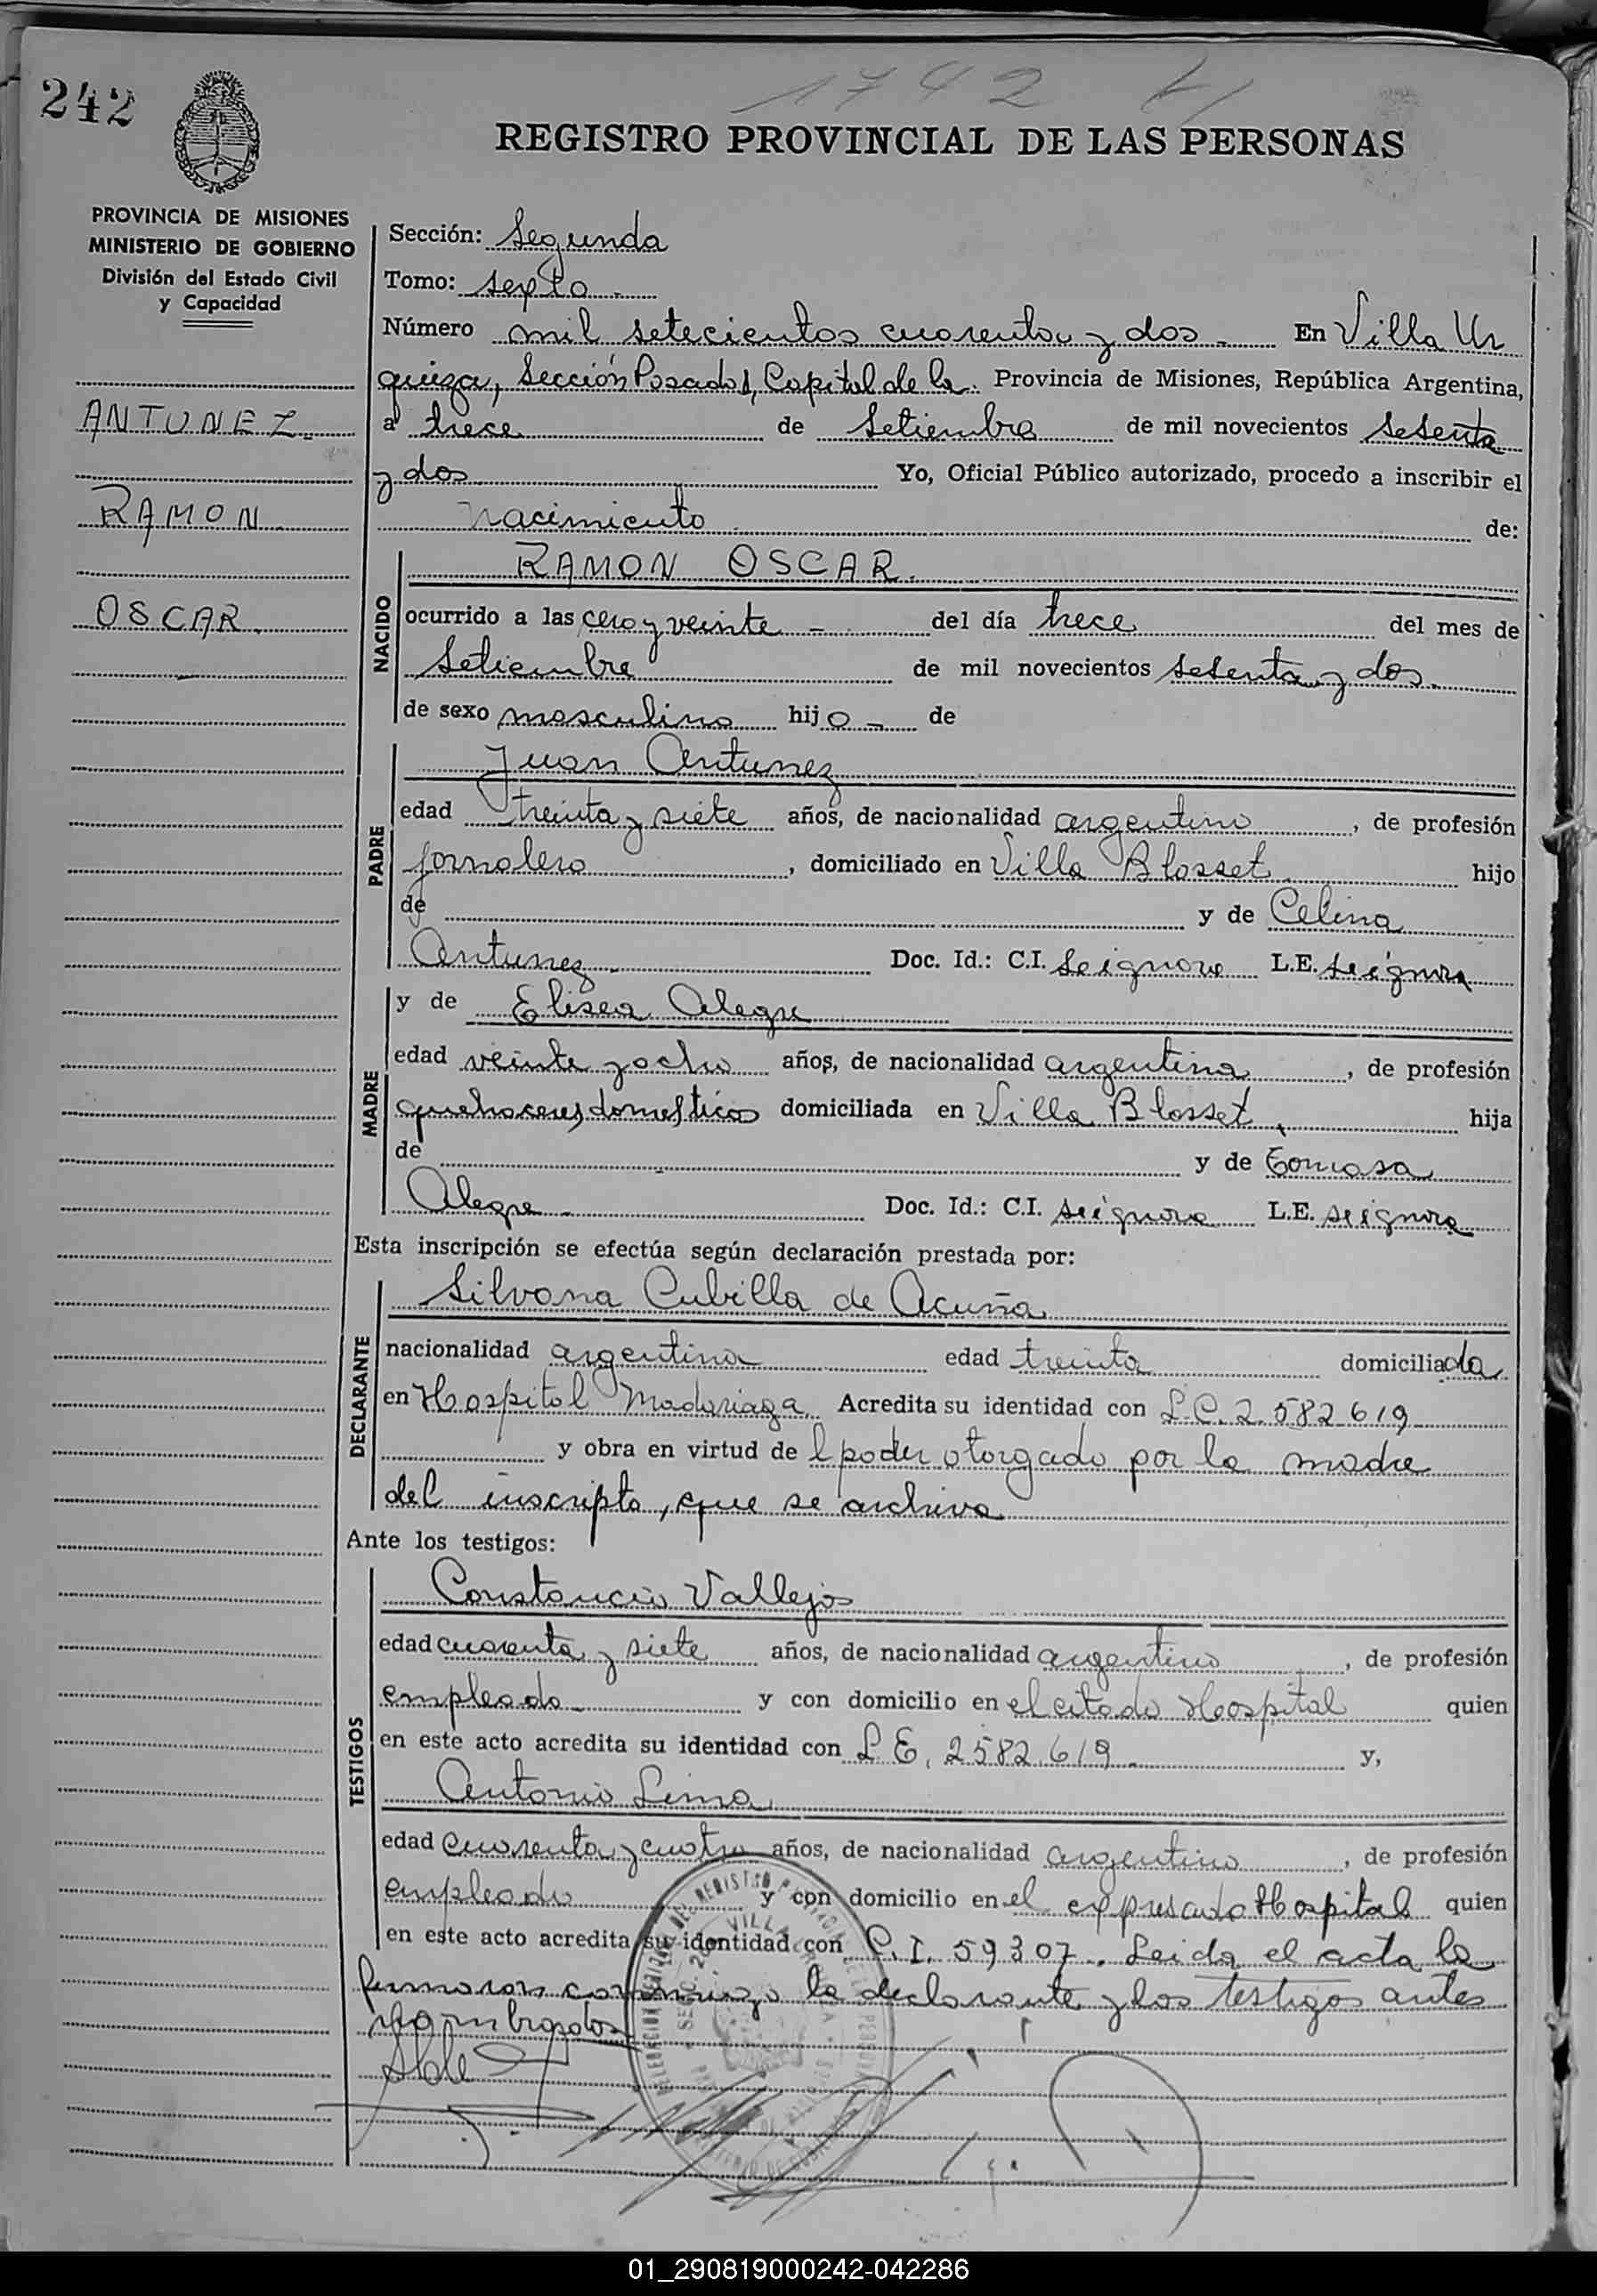 242
1742
REGISTRO PROVINCIAL DE LAS PERSONAS
PROVINCIA DE MISIONES
MINISTERIO DE GOBIERNO
División del Estado Civil
y Capacidad
ANTUNEZ.
RAMON
OSCAR.
Sección: Segunda
Tomo: sexto
Número mil setecientos cuarenta y dos En Villa Ur
quiza, Sección Posadas, Capital de la Provincia de Misiones, República Argentina,
a trece de Setiembre de mil novecientos setenta
y dos Yo, Oficial Público autorizado, procedo a inscribir el
nacimiento de:
NACIDO
RAMON OSCAR.
ocurrido a las cero y veinte del día trece del mes de
Setiembre de mil novecientos setenta y dos
de sexo masculino hijo de
PADRE
Juan Antunez
edad treinta y siete años, de nacionalidad argentino, de profesión
jornalero, domiciliado en Villa Blosset hijo
de y de Celina
Antunez Doc. Id.: C.I. se ignora L.E. se ignora
MADRE
y de Elisea Alegre
edad veinte y ocho años, de nacionalidad argentina, de profesión
quehaceres domesticos domiciliada en Villa Blosset, hija
de y de Tomasa
Alegre Doc. Id.: C.I. se ignora L.E. se ignora
Esta inscripción se efectúa según declaración prestada por:
DECLARANTE
Silvana Cubilla de Acuña
nacionalidad argentina edad treinta domiciliada
en Hospital Madariaga. Acredita su identidad con L.C. 2.582.619
y obra en virtud del poder otorgado por la madre
del inscripto, que se archiva
Ante los testigos:
TESTIGOS
Constancio Vallejos
edad cuarenta y siete años, de nacionalidad argentino, de profesión
empleado y con domicilio en el citado Hospital quien
en este acto acredita su identidad con L.E. 2.582.619 y,
Antonio Lima
edad cuarenta y cuatro años, de nacionalidad argentino, de profesión
empleado y con domicilio en el expresado Hospital quien
en este acto acredita su identidad con C.I. 59.307. Leida el acta la
firmaron conmigo la declarante y los testigos antes
nombrados
01_290819000242-042286